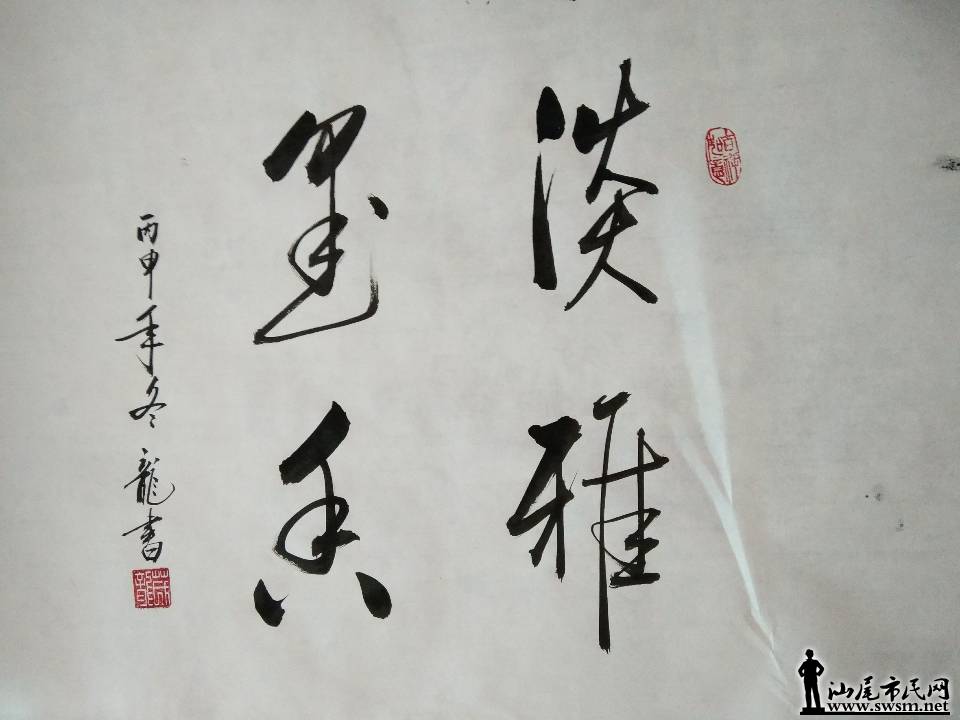 吉祥如意
淡雅
墨香
丙申年冬 龍書
汕尾市民网
www.swsm.net